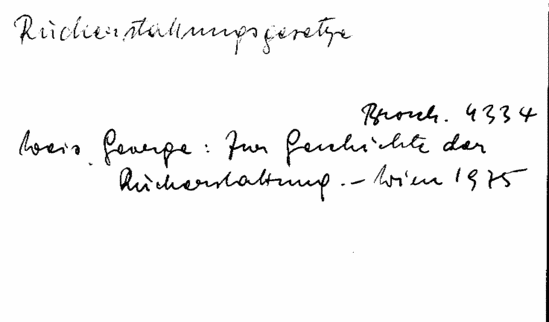 Rückerstattungsgesetze
Brosch. 4334
Weis, George: Zur Geschichte der
Rückerstattung. – Wien 1975